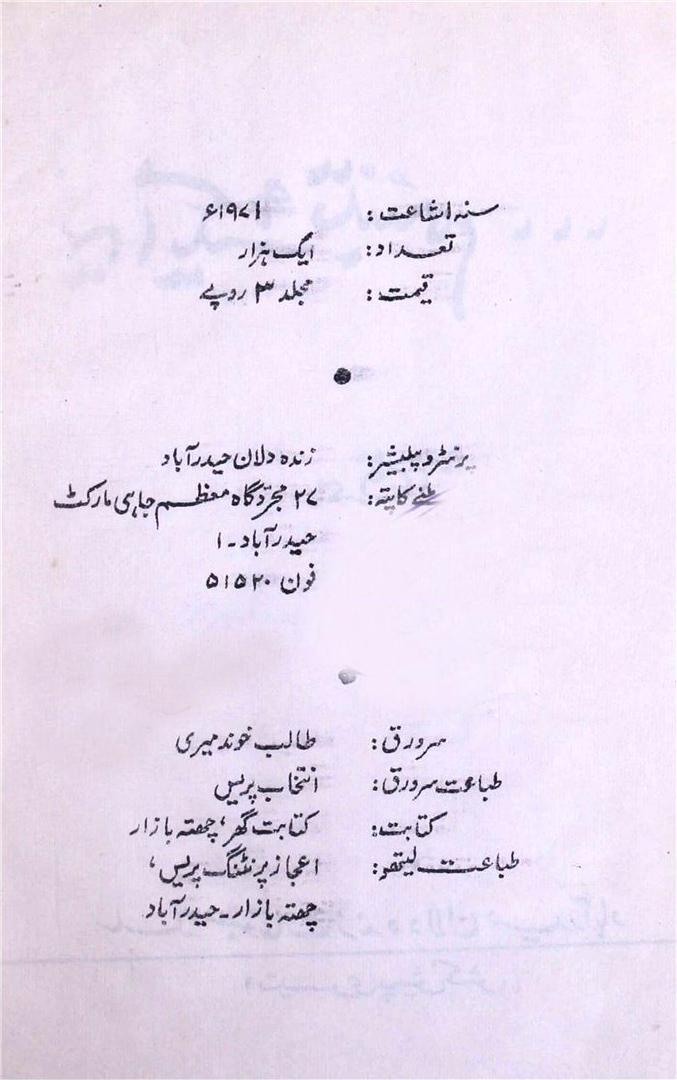 سنہ اشاعت: ۱۹۷۱ء
تعداد: ایک ہزار
قیمت: مجلد ۳ روپے
پرنٹر و پبلیشر: زندہ دلان حیدرآباد
ملنے کا پتہ: ۲۷ مجردگاہ معظم جاہی مارکٹ
حیدرآباد۔۱
فون ۵۱۵۲۰
سرورق: طالب خوندمیری
طباعت سرورق: انتخاب پریس
کتابت: کتابت گھر، چھتہ بازار
طباعت لیتھو: اعجاز پرنٹنگ پریس،
چھتہ بازار۔ حیدرآباد